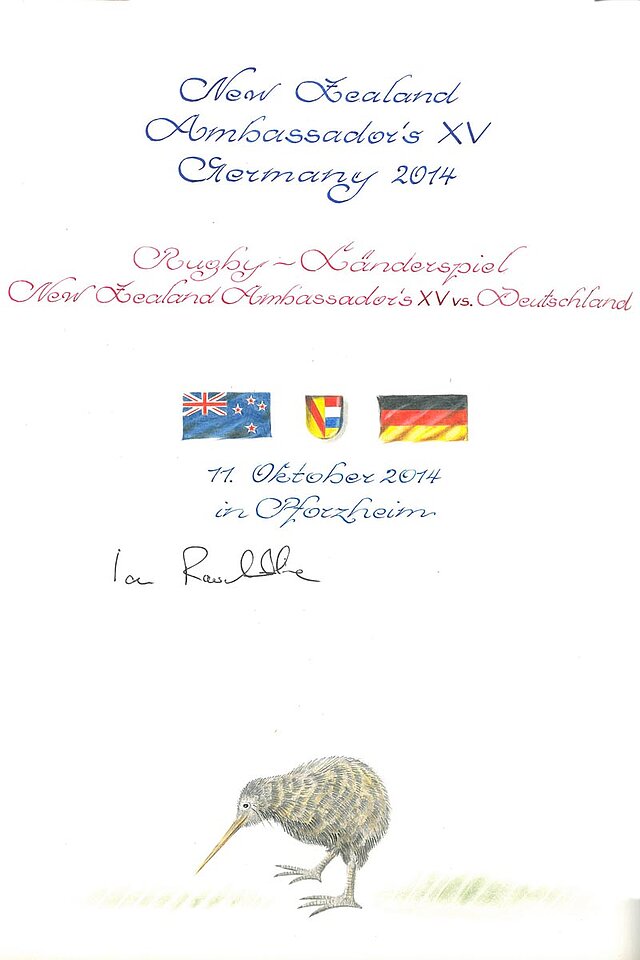 New Zealand
Ambassador's XV
Germany 2014
Rugby - Länderspiel
New Zealand Ambassador's XV vs. Deutschland
11. Oktober 2014
in Pforzheim
Ian